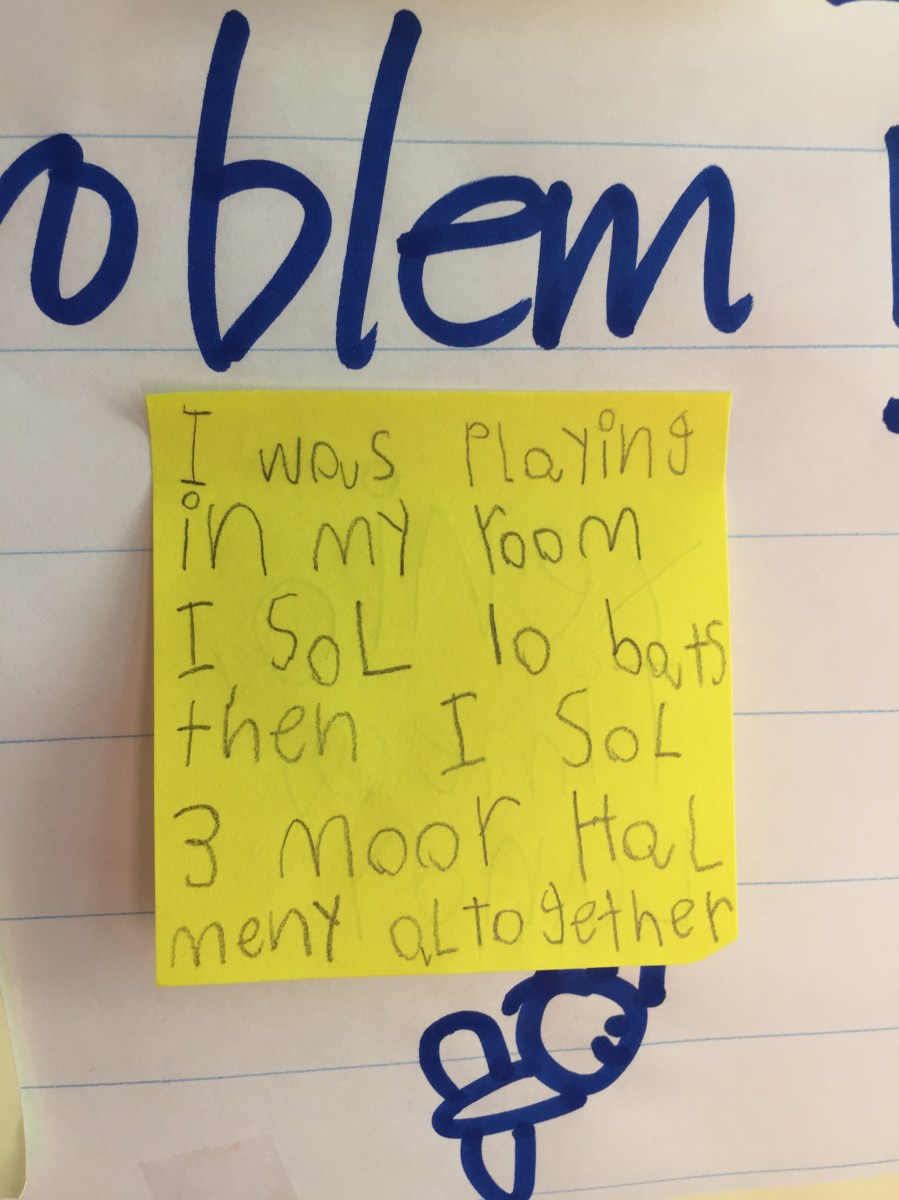 oblem
I was Playing
in my room
I SoL 10 bats
then I SoL
3 moor HaL
meny aLtogether